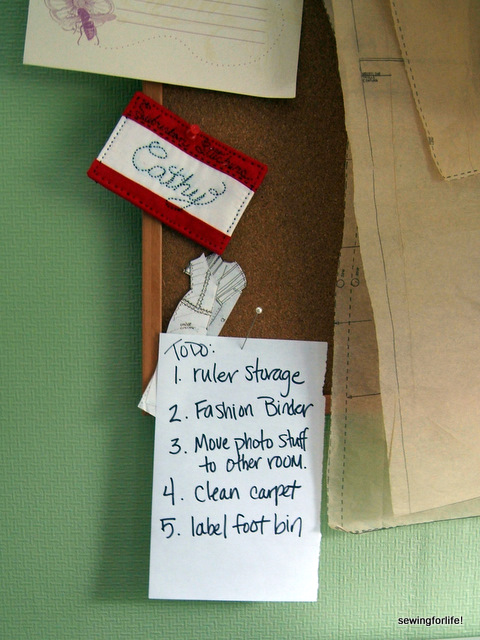 Cathy
TODO:
1. ruler storage
2. Fashion Binder
3. Move photo stuff
to other room.
4. Clean carpet
5. label foot bin
sewingforlife!